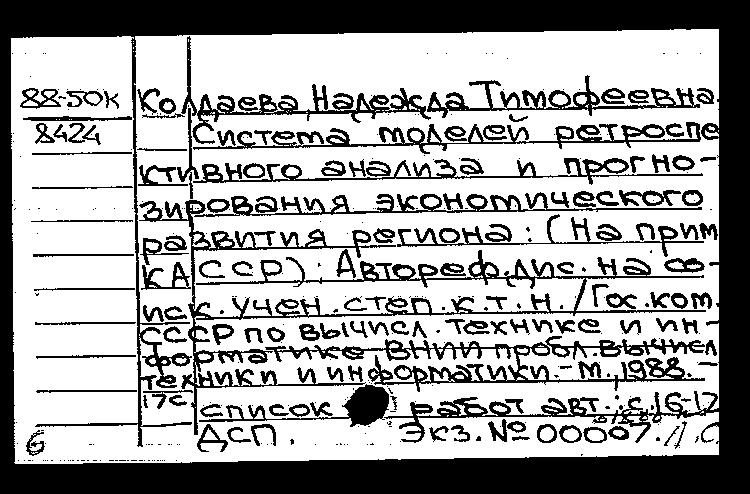 88-50к Колдаева, Надежда Тимофеевна.
8424 Система моделей ретроспе
ктивного анализа и прогно-
зирования экономического
развития региона: (На прим
КАССР): Автореф. дис. на со-
иск. учен. степ. к.т.н. / Гос. ком.
СССР по вычисл. технике и ин-
форматике, ВНИИ пробл. вычисл
техники и информатики. - М., 1988. -
17с. список работ авт.: с. 16-17
ДСП. Экз. № 00007.
6